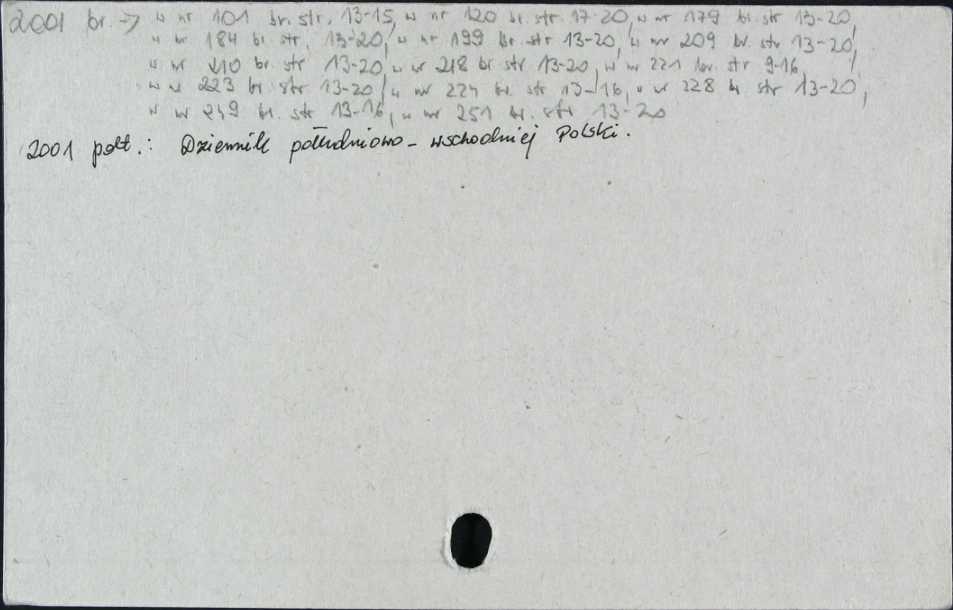 2001 br. → w nr 101 br. str. 13-15, w nr 120 br. str. 17-20, w nr 179 br. str 13-20,
w nr 184 br. str. 13-20, w nr 199 br. str 13-20, w nr 209 br. str 13-20,
w nr 210 br. str 13-20, w nr 218 br str 13-20, w nr 221 br. str 9-16,
w nr 223 br. str 13-20, w nr 224 br. str 13-16, w nr 228 br str 13-20,
w nr 249 br. str 13-16, w nr 251 br. str 13-20
2001 podt.: Dziennik południowo-wschodniej Polski.